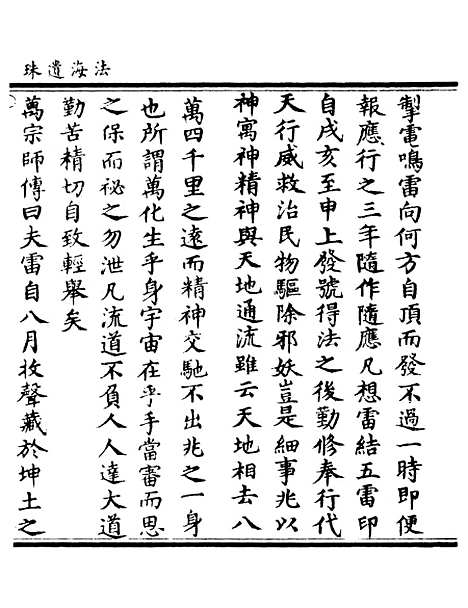 法海遺珠
掣電鳴雷向何方自頂而發不過一時即便
報應行之三年隨作隨應凡想雷結五雷印
自戌亥至申上發號得法之後勤修奉行代
天行威救治民物驅除邪妖豈是細事兆以
神寓神精神與天地通流雖云天地相去八
萬四千里之遠而精神交馳不出兆之一身
也所謂萬化生乎身宇宙在乎手當審而思
之保而祕之勿泄凡流道不負人人達大道
勤苦精切自致輕舉矣
萬宗師傳曰夫雷自八月收聲藏於坤土之